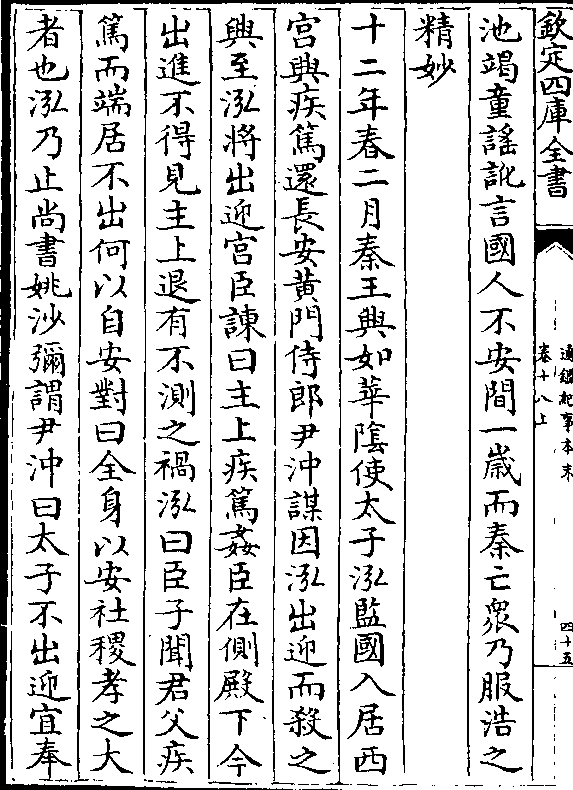 欽定四庫全書
通鑑紀事本末
卷十八上
四十五
池竭童謡訛言國人不安間一歲而秦亡衆乃服浩之
精妙
十二年春二月秦王興如華陰使太子泓監國入居西
宮興疾篤還長安黃門侍郎尹沖謀因泓出迎而殺之
興至泓將出迎宮臣諫曰主上疾篤姦臣在側殿下今
出進不得見主上退有不測之禍泓曰臣子聞君父疾
篤而端居不出何以自安對曰全身以安社稷孝之大
者也泓乃止尚書姚沙彌謂尹沖曰太子不出迎宜奉